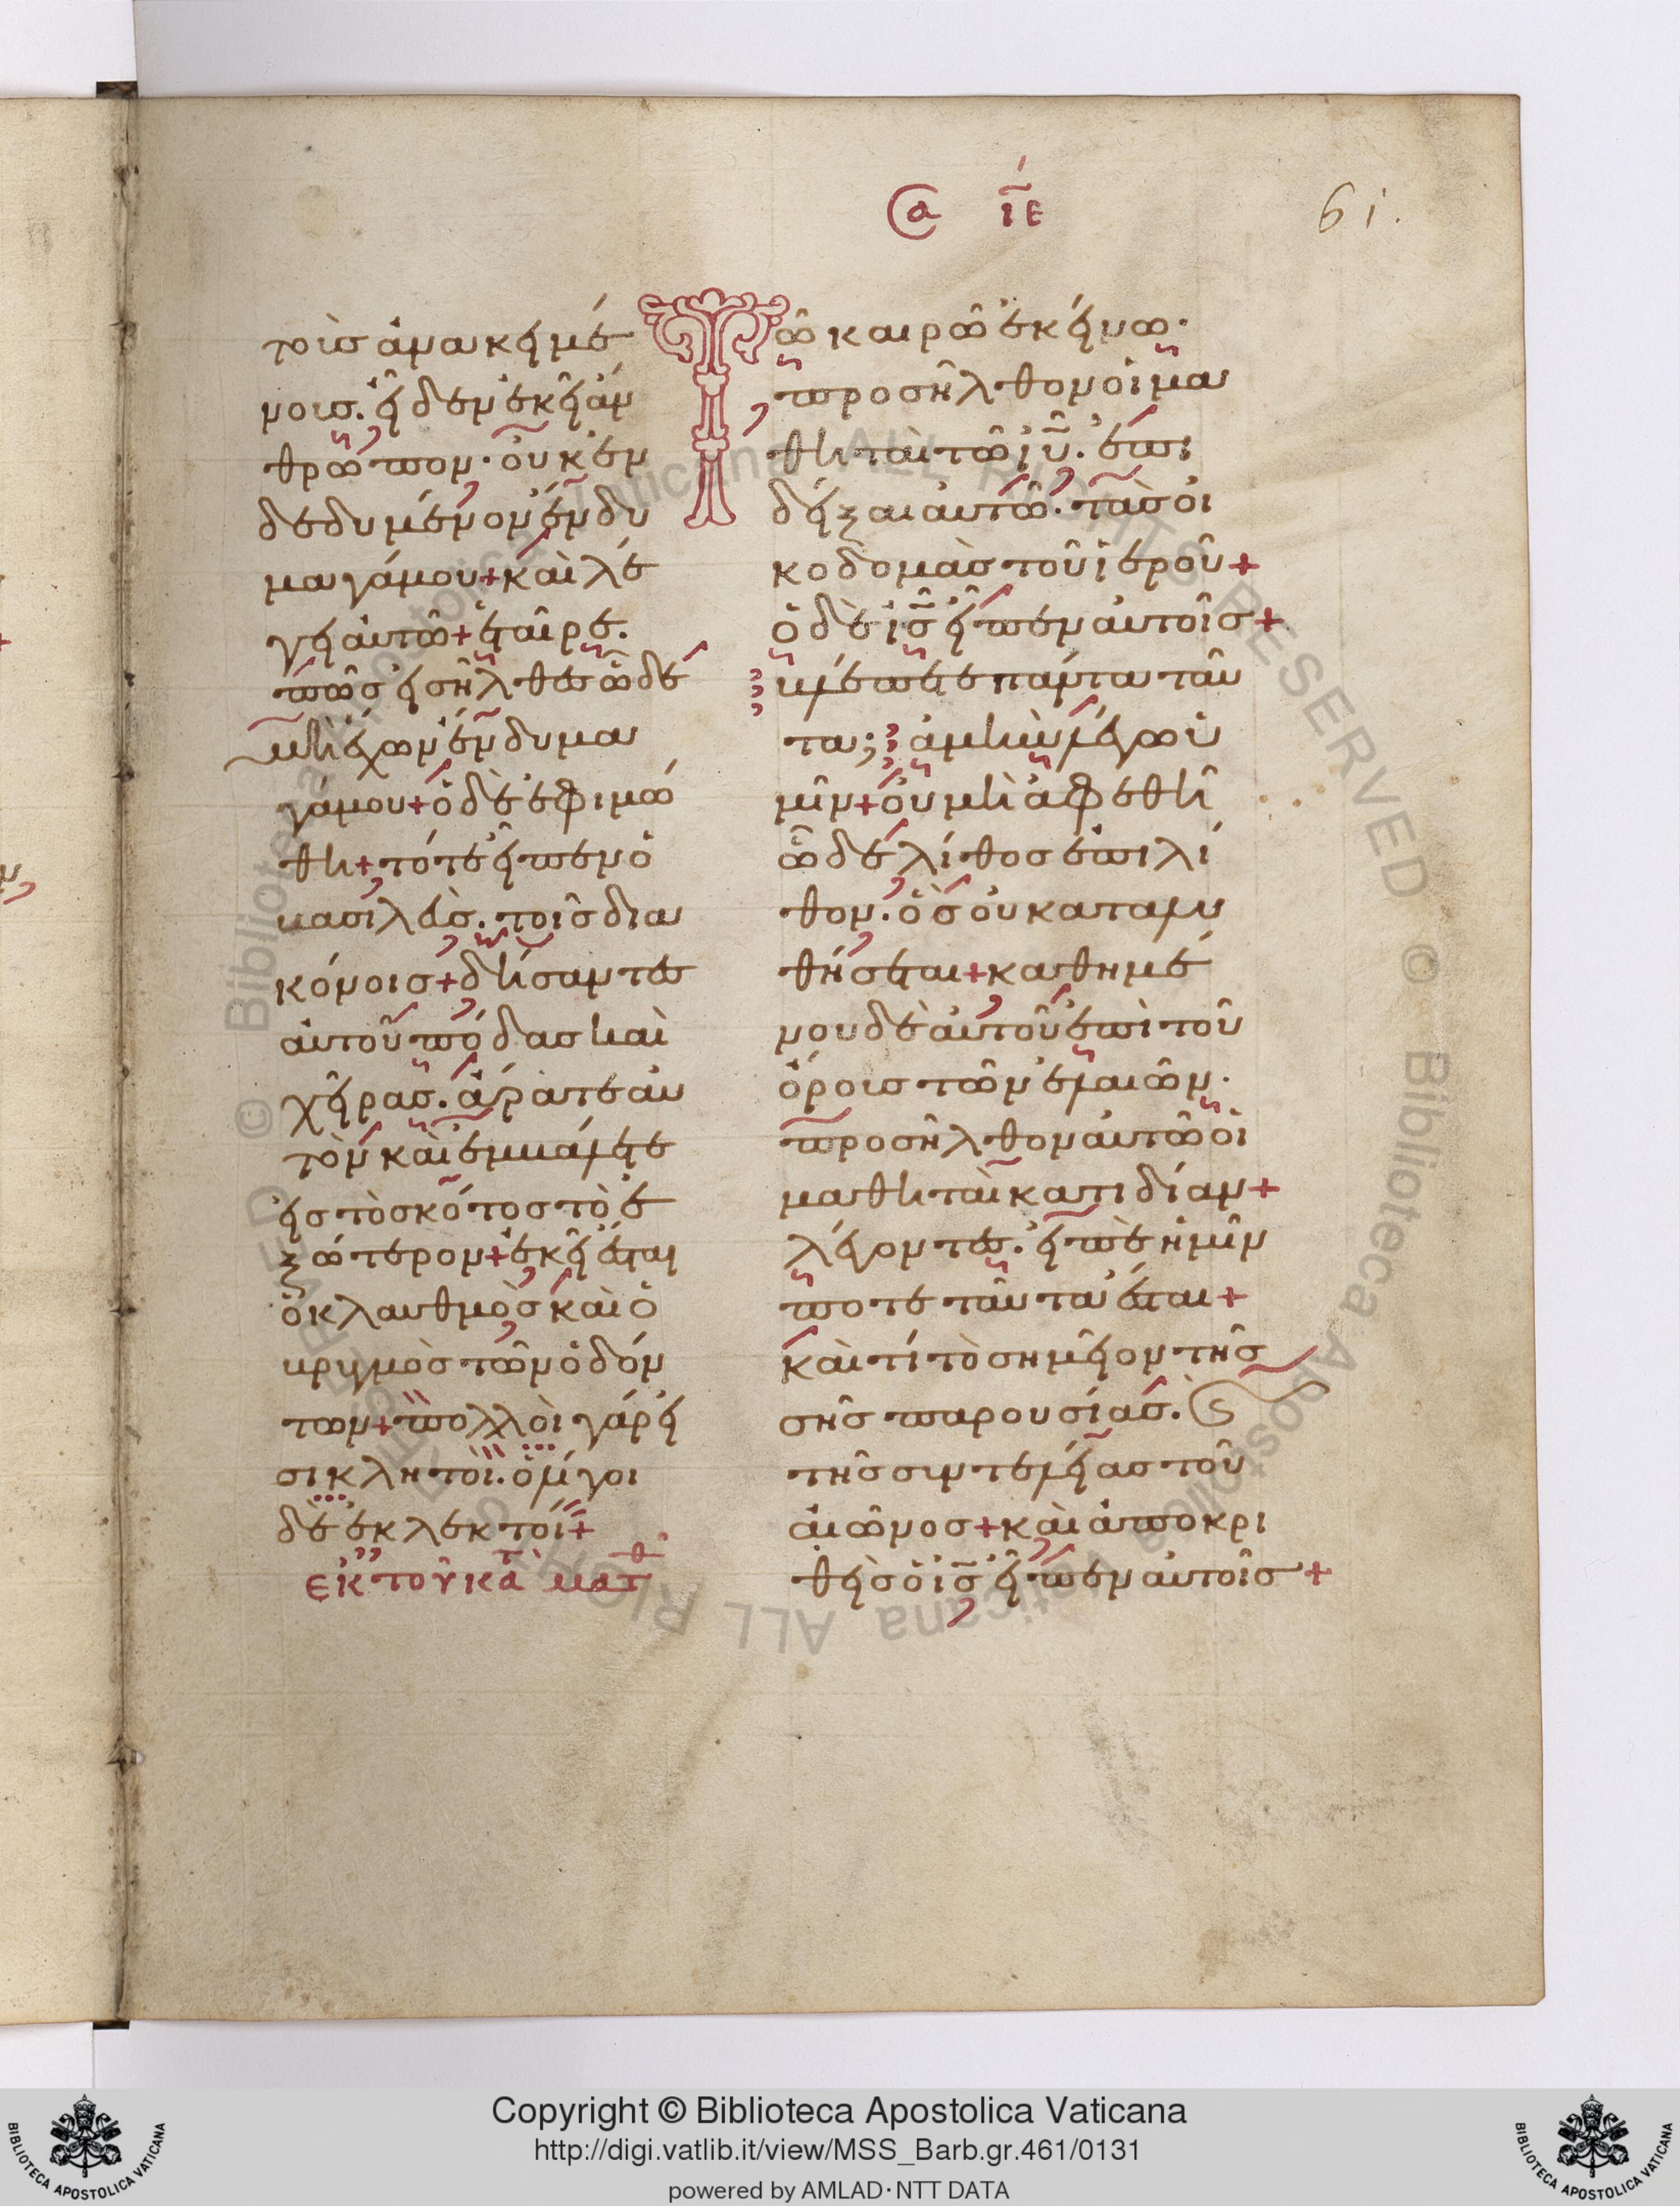 α ιε
61.
τοὺς ἀνακειμέ
νους. εἶδεν ἐκεῖ ἄν
θρωπον. οὐκ ἐν
δεδυμένον ἔνδυ
μα γάμου + καὶ λέ
γει αὐτῶ + ἑταῖρε.
πῶς εἰσῆλθες ὧδε
μὴ ἔχων ἔνδυμα
γάμου + ὁ δὲ ἐφιμώ
θη + τότε εἶπεν ὁ
βασιλεὺς. τοῖς δια
κόνοις + δήσαντες
αὐτοῦ πόδας καὶ
χεῖρας. ἄρατε αὐ
τὸν καὶ ἐμβάλετε
εἰς τὸ σκότος τὸ ἐ
ξώτερον + ἐκεῖ ἔσται
ὁ κλαυθμὸς καὶ ὁ
βρυγμὸς τῶν ὀδόν
των + πολλοὶ γάρ εἰ
σι κλητοὶ. ὀλίγοι
δὲ ἐκλεκτοί +
ἐκ τοῦ κατὰ ματθ
Τῶ καιρῶ ἐκείνω.
προσῆλθον οἱ μα
θηταὶ τῶ ιυ. ἐπι
δεῖξαι αὐτῶ. τὰς οἰ
κοδομὰς τοῦ ἱεροῦ +
ὁ δὲ ις εἶπεν αὐτοῖς +
βλέπετε πάντα ταῦ
τα; ἀμὴν λέγω ὑ
μῖν + οὐ μὴ ἀφεθῆ
ὧδε λίθος ἐπὶ λί
θον. ὃς οὐ καταλυ
θήσεται + καθημέ
νου δὲ αὐτοῦ ἐπὶ τοῦ
ὄρους τῶν ἐλαιῶν.
προσῆλθον αὐτῶ οἱ
μαθηταὶ κατιδίαν +
λέγοντες. εἰπὲ ἡμῖν
πότε ταῦτα ἔσται +
καὶ τί τὸ σημεῖον τῆς
σῆς παρουσίας. ϗ
τῆς συντελείας τοῦ
αἰῶνος + καὶ ἀποκρι
θεὶς ὁ ις εἶπεν αὐτοῖς +
Copyright © Biblioteca Apostolica Vaticana
http://digi.vatlib.it/view/MSS_Barb.gr.461/0131
powered by AMLAD·NTT DATA
BIBLIOTECA APOSTOLICA VATICANA
BIBLIOTECA APOSTOLICA VATICANA